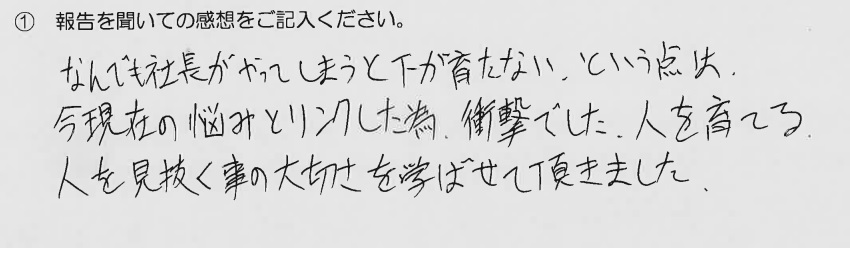 ① 報告を聞いての感想をご記入ください。
なんでも社長がやってしまうと下が育たない、という点は、
今現在の悩みとリンクした為、衝撃でした、人を育てる、
人を見抜く事の大切さを学ばせて頂きました、